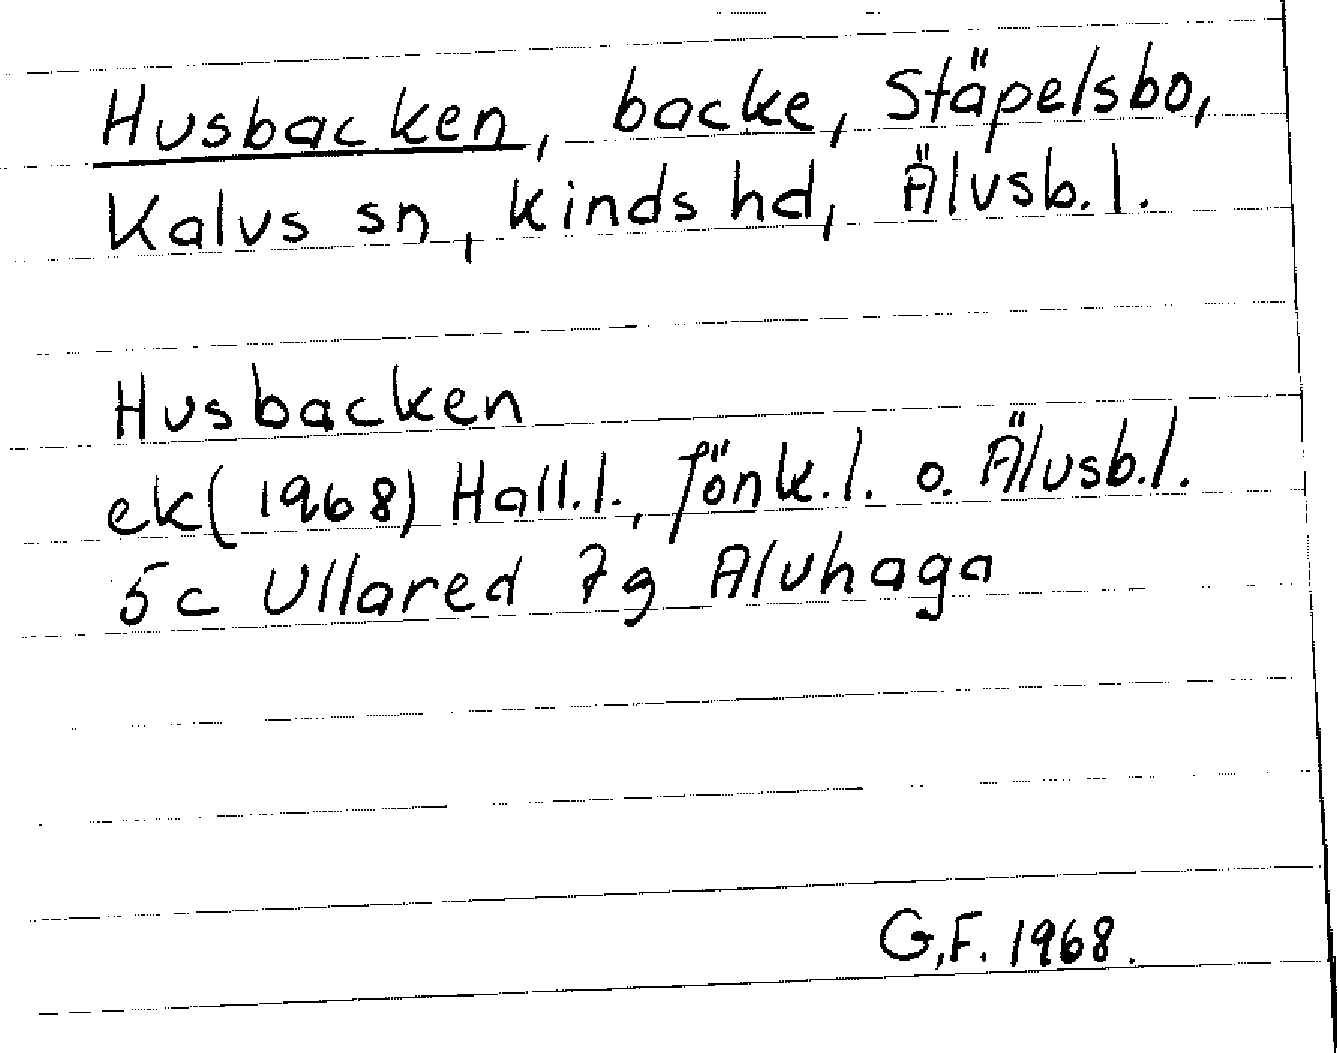 Husbacken, backe, Stäpelsbo,
Kalvs sn, Kinds hd, Älvsb. l.
Husbacken
ek(1968) Hall.l., Jönk.l. o. Älvsb.l.
5c Ullared 7g Alvhaga
G.F. 1968.